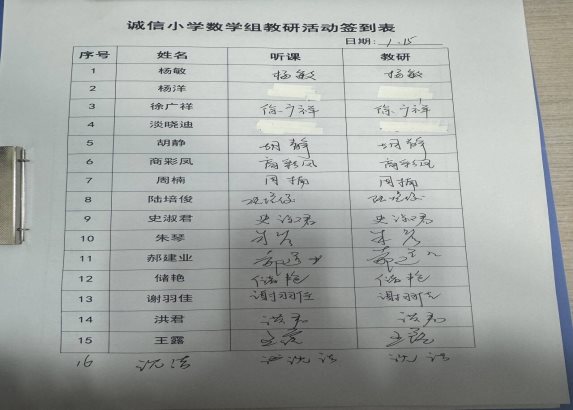 诚信小学数学组教研活动签到表
日期: 1.15
序号 姓名 听课 教研
1 杨敏 杨敏 杨敏
2 杨洋
3 徐广祥 徐广祥 徐广祥
4 淡晓迪
5 胡静 胡静 胡静
6 商彩凤 商彩凤 商彩凤
7 周楠 周楠 周楠
8 陆培俊 陆培俊 陆培俊
9 史淑君 史淑君 史淑君
10 朱琴 朱琴 朱琴
11 郝建业
12 储艳 储艳 储艳
13 谢羽佳 谢羽佳 谢羽佳
14 洪君 洪君 洪君
15 王露 王露 王露
16 沈洁 沈洁 沈洁